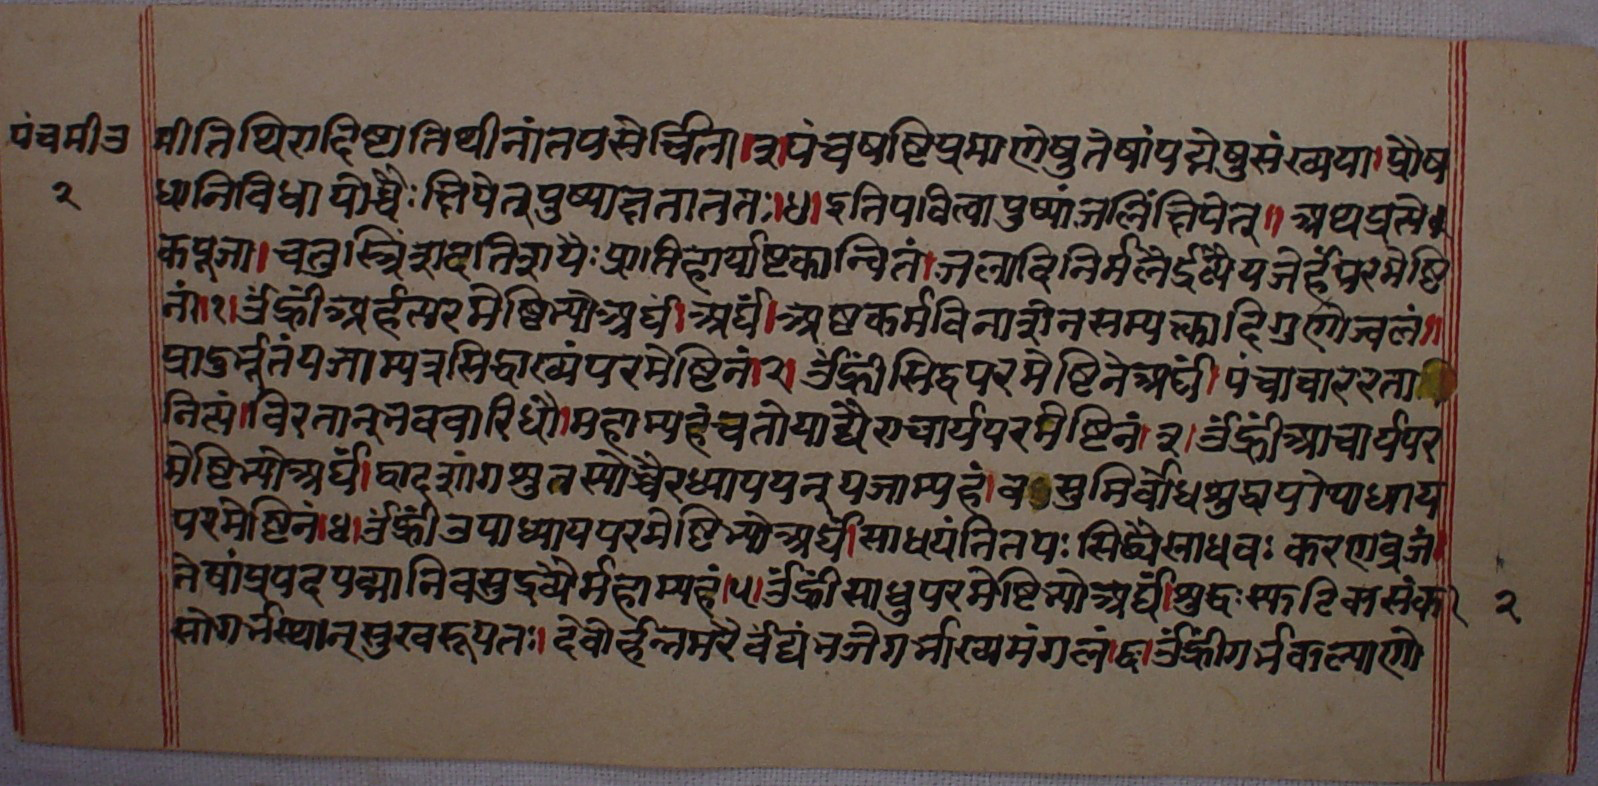 पंचमीउ
२
मीतिथिरादिष्टातिथीनांतपसेर्चिता।३।पंचषष्टिप्रमाणेषुतेषांपद्मेषुसंख्यया।प्रौष
धानिविधायोच्चैःक्षिपेत्पुष्पाक्षतातत:।४।इतिपवित्वापुष्पांजलिंक्षिपेत्॥अथप्रत्ये
कपूजा।चतुस्त्रिंशदतिशयैःप्रातिहार्याष्टकान्वितं।जलादिनिर्मलैर्द्रव्यैर्यजेर्हंपरमेष्टि
नं।१।ॐह्रींअर्हत्परमेष्टिभ्योअर्घं।अर्घं।अष्टकर्मविनाशेनसम्यक्त्कादिगुणोज्वलं॥
प्राडर्भूतंयजाम्यत्रसिद्धाख्यंपरमेष्टिनं।२।ॐह्रींसिद्धपरमेष्टिनेअर्घं।पंचाचाररता
नित्यं।विरतान्नववारिधौ।महाम्यहंचतोयाद्यैराचार्यपरमेष्टिनं।३।ॐह्रींआचार्यपर
मेष्टिभ्योअर्घं।द्वादशांगश्रुतस्योच्चैरध्यापयन्यजाम्यहं।सुमिर्बोधशुद्धयोपाध्याय
परमेष्टिनं।४।ॐह्रींउपाध्यायपरमेष्टिभ्योअर्घं।साधयंतितपःसिध्यैसाधवःकरणव्रजं।
तेषांप्रपदपद्मानिवसुद्रव्यैर्महाम्यहं।५।ॐह्रींसाधुपरमेष्टिभ्योअर्घं।शुद्धःस्फटिकसंका
२
सोगर्भस्थान्सुखरूपतः।देवोर्हन्तमरैर्वंद्यंभजेगर्भाख्यमंगलं।६।ॐह्रींगर्भकल्याणे